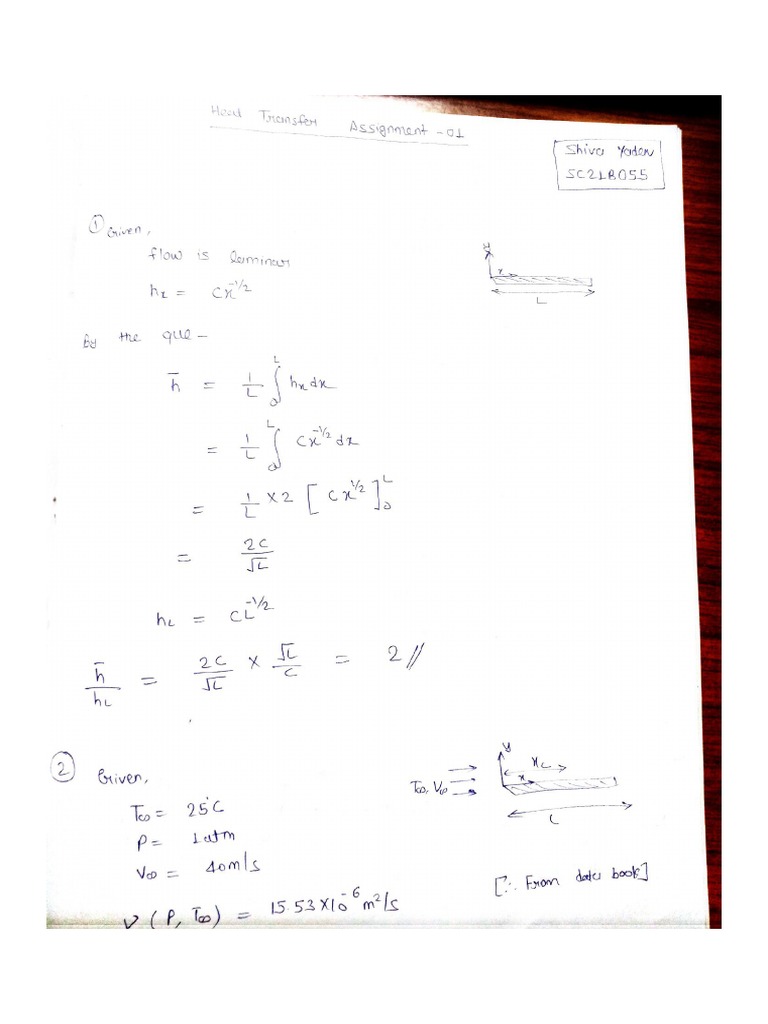 Heat Transfer Assignment -01
Shiva Yadav
SC21B055
① Given,
flow is laminar
hx = Cx^-1/2
y
x
L
By the que -
h̄ = 1/L ∫₀ᴸ hx dx
= 1/L ∫₀ᴸ Cx^-1/2 dx
= 1/L × 2 [ Cx^1/2 ]₀ᴸ
= 2C/√L
hL = CL^-1/2
h̄/hL = 2C/√L × √L/C = 2 //
② Given,
T∞ = 25°C
P = 1 atm
V∞ = 40 m/s
T∞, V∞
y
xc
x
L
ν (P, T∞) = 15.53 × 10^-6 m²/s [∵ From data book]